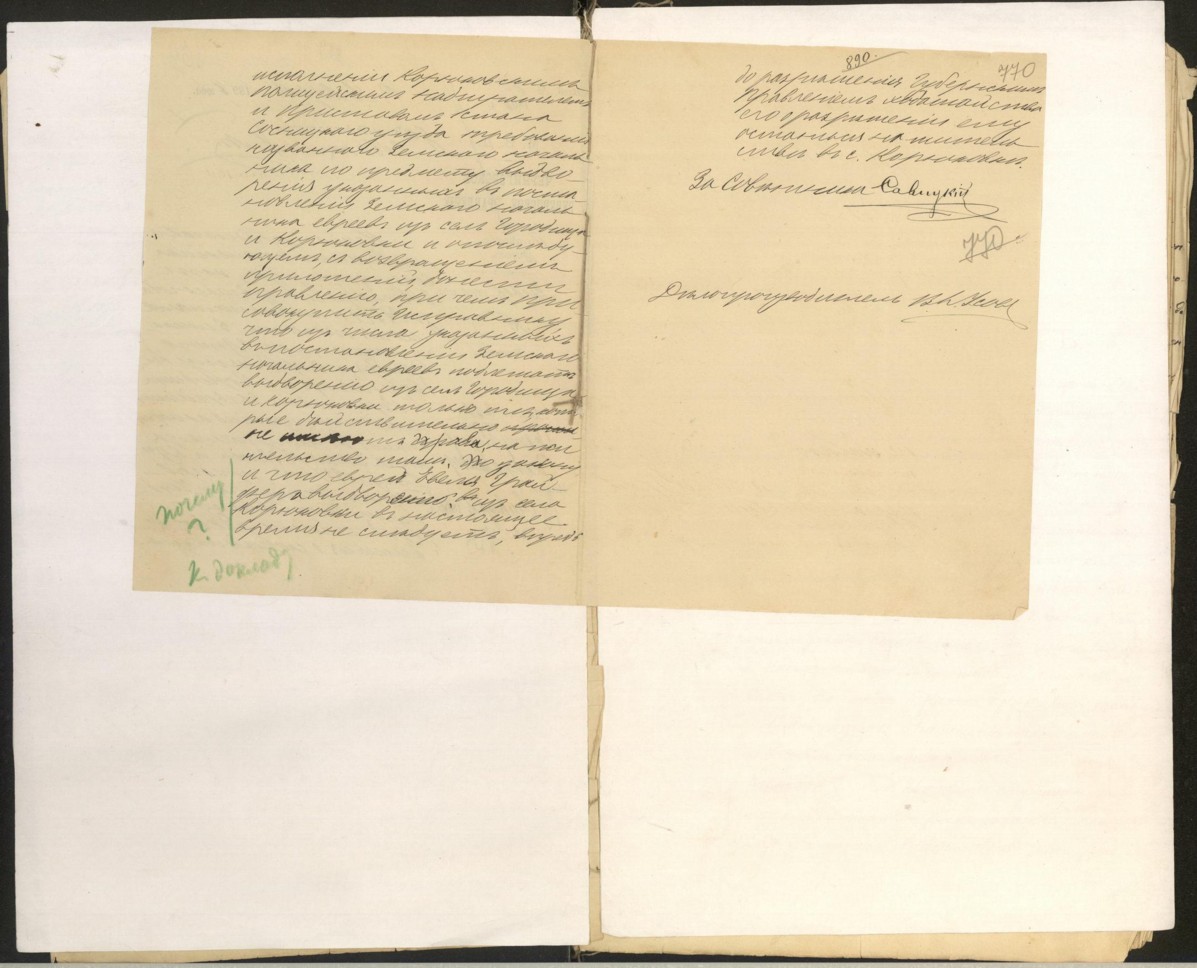 исполненіи Корюковскимъ
полицейскимъ надзирателемъ
и Приставомъ 1 стана
Сосницкаго уѣзда требованій
названнаго Земскаго началь-
ника по предмету выдво-
ренія указанныхъ въ поста-
новленіи Земскаго началь-
ника евреевъ изъ селъ Городища
и Корюковки и о послѣду-
ющемъ, съ возвращеніемъ
приложеній, донести
Правленію, при чемъ при-
совокупить Исправнику
что изъ числа указанныхъ
въ постановленіи Земскаго
начальника евреевъ подлежатъ
выдворенію изъ селъ Городища
и Корюковки только тѣ, кото-
рые дѣйствительно
не имѣютъ права на жи-
тельство тамъ по закону
и что еврей Евель
выдворенію изъ села
Корюковки въ настоящее
время не слѣдуетъ, впредь
почему
?
Къ докладу
890.
770
до разрѣшенія Губернскимъ
Правленіемъ ходатайства
его о разрѣшеніи ему
остаться на житель-
ствѣ въ с. Корюковкѣ.
За Совѣтника Савицкій
770
Дѣлопроизводитель